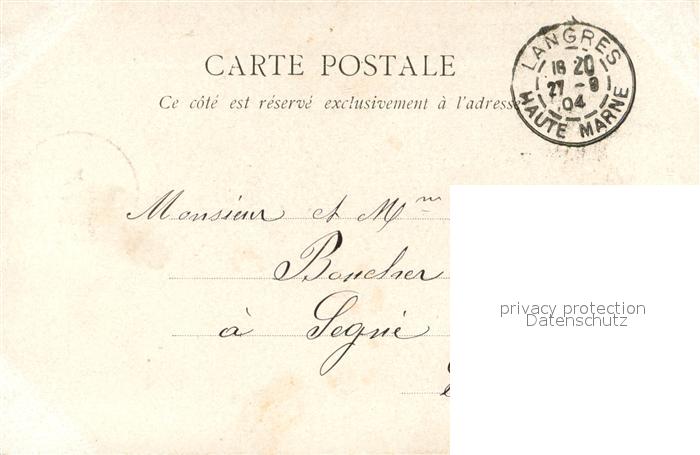 CARTE POSTALE
Ce côté est réservé exclusivement à l'adresse
LANGRES
18 20
27 - 9
04
HAUTE MARNE
Monsieur et Mme
Boucher
à Segrie
privacy protection
Datenschutz